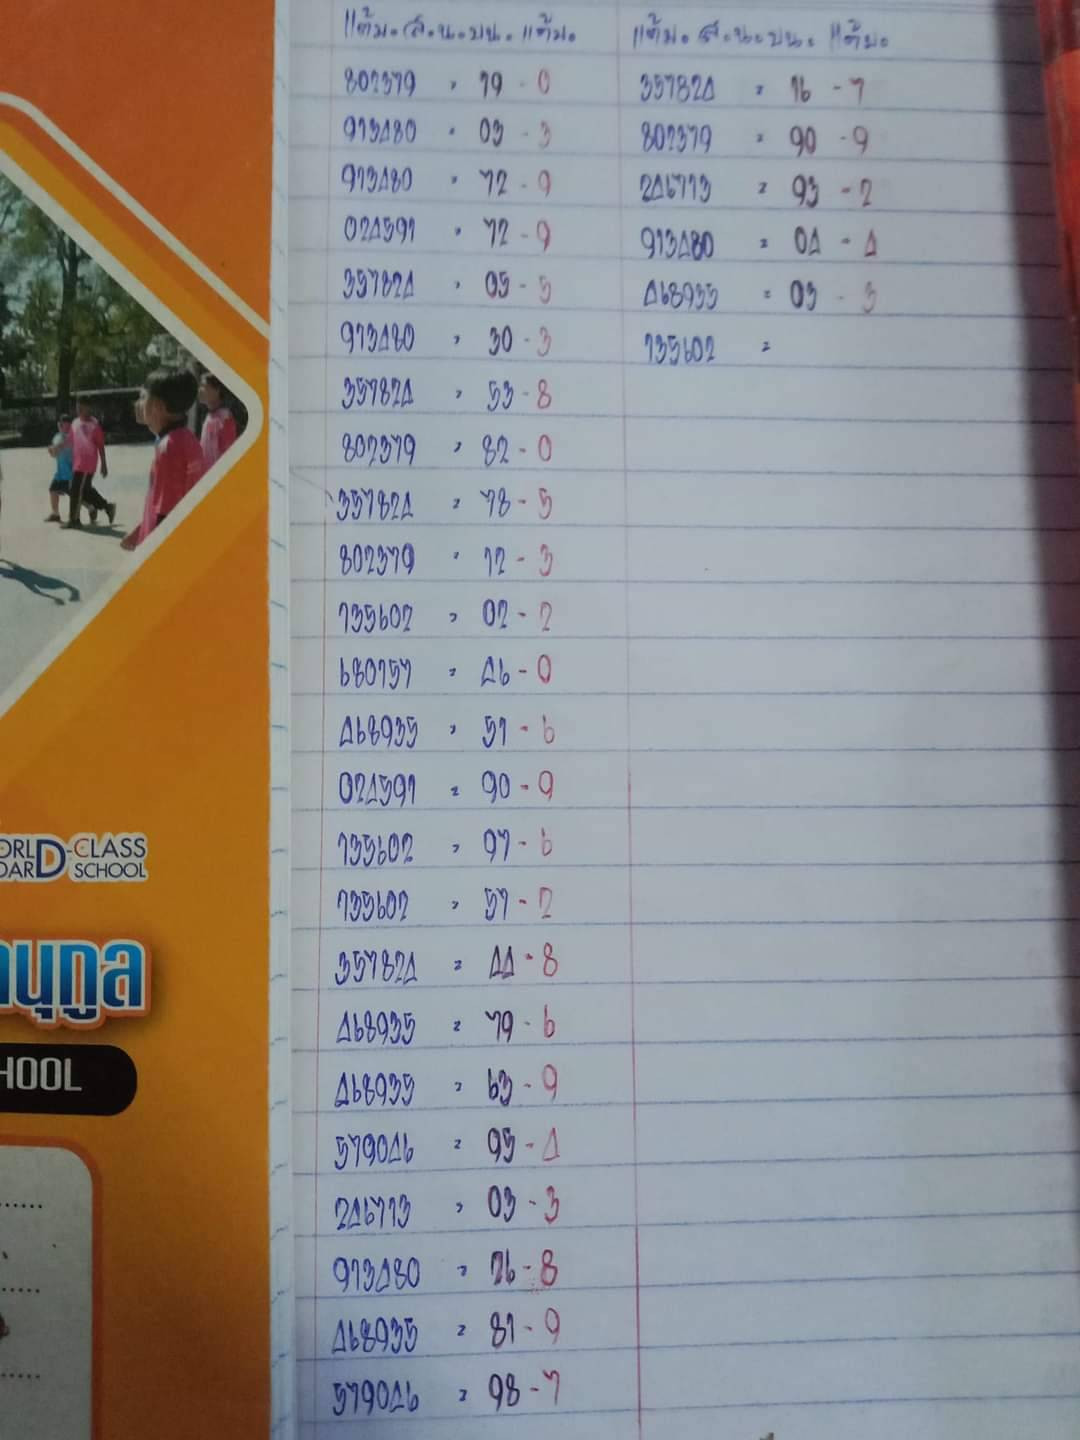 แต้ม. ส.น.บน. แต้ม.
802379 = 19 - 0
913480 = 03 - 3
913480 = 72 - 9
024591 = 72 - 9
357824 = 05 - 5
913480 = 30 - 3
357824 = 53 - 8
802379 = 82 - 0
357824 = 78 - 5
802379 = 12 - 3
135602 = 02 - 2
680157 = 46 - 0
468935 = 51 - 6
024591 = 90 - 9
135602 = 97 - 6
135602 = 57 - 2
357824 = 44 - 8
468935 = 79 - 6
468935 = 63 - 9
579046 = 95 - 4
246713 = 03 - 3
913480 = 26 - 8
468935 = 81 - 9
579046 = 98 - 7
แต้ม. ส.น.บน. แต้ม.
357824 = 16 - 7
802379 = 90 - 9
246713 = 93 - 2
913480 = 04 - 4
468935 = 03 - 3
135602 =
D-CLASS
SCHOOL
นุกูล